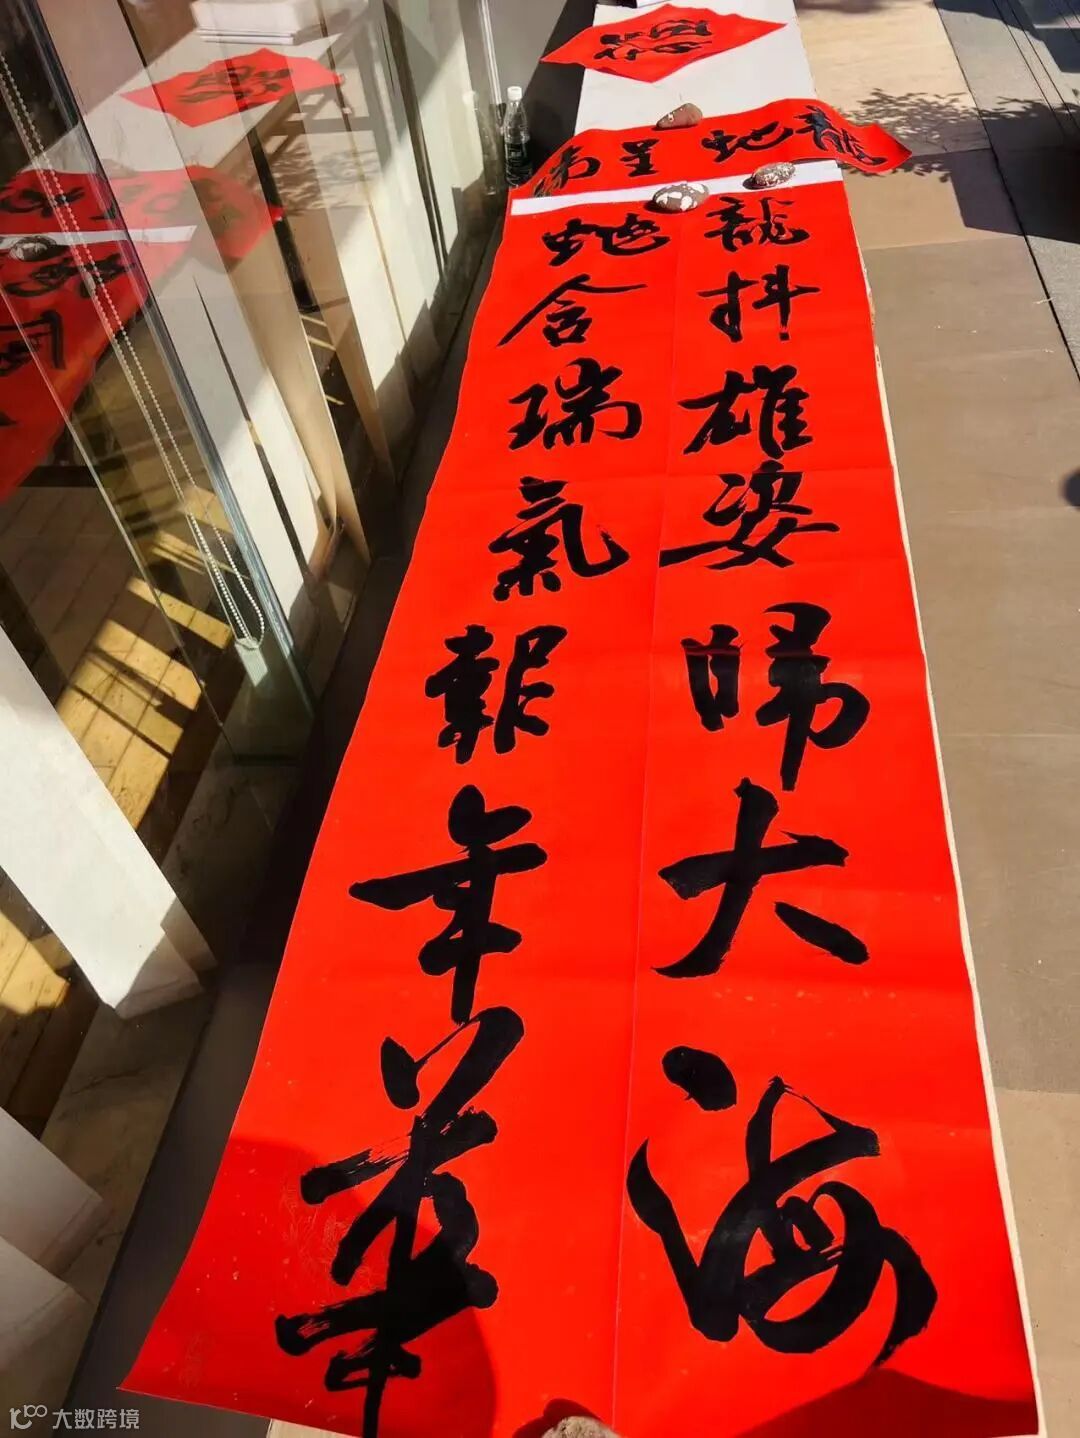 龍抖雄姿歸大海
蛇含瑞氣報年華
龍蛇呈
大数跨境